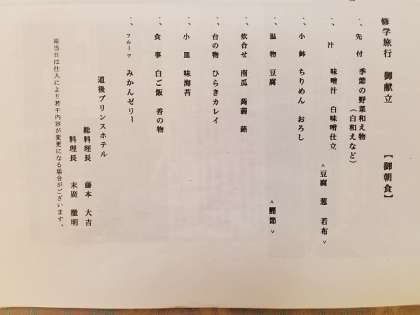 修学旅行 御献立 【御朝食】
一、先付 季節の野菜和え物
(白和えなど)
一、汁 味噌汁 白味噌仕立
<豆腐 葱 若布>
一、小鉢 ちりめん おろし
一、温物 豆腐
<鰹節>
一、炊合せ 南瓜 蒟蒻 蕗
一、台の物 ひらきカレイ
一、小皿 味海苔
一、食事 白ご飯 香の物
一、フルーツ みかんゼリー
道後プリンスホテル
総料理長 藤本 大吉
料理長 末廣 徹明
※当日仕入により若干内容が変更になる場合がございます。